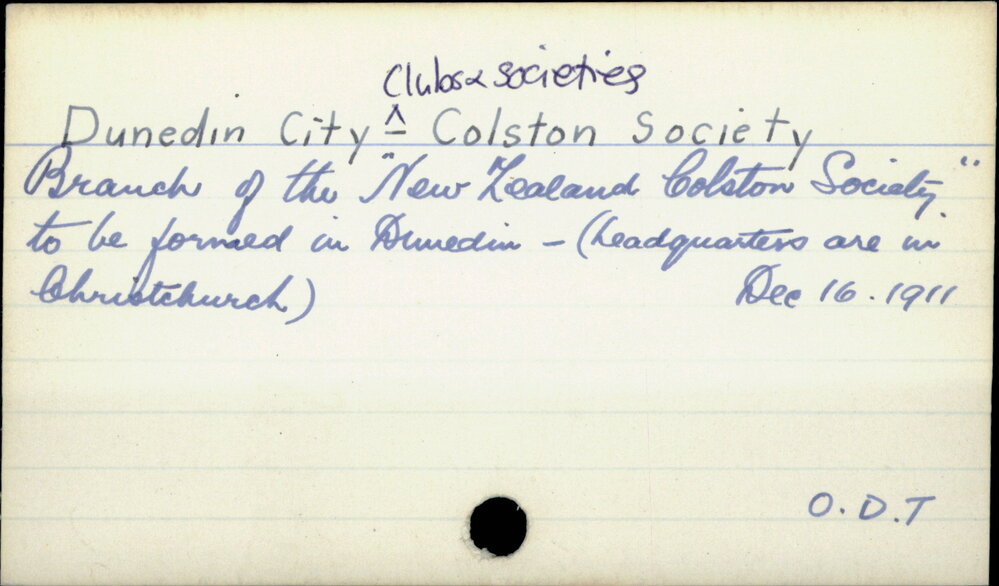 Clubs & societies
Dunedin City ^ - Colston Society
Branch of the "New Zealand Colston Society"
to be formed in Dunedin - (headquarters are in
Christchurch) Dec 16. 1911
O. D. T